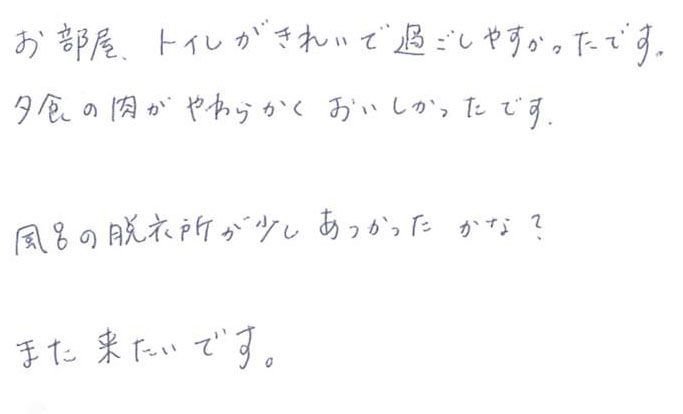 お部屋、トイレがきれいで過ごしやすかったです。
夕食の肉がやわらかくおいしかったです.
風呂の脱衣所が少しあつかったかな?
また来たいです。